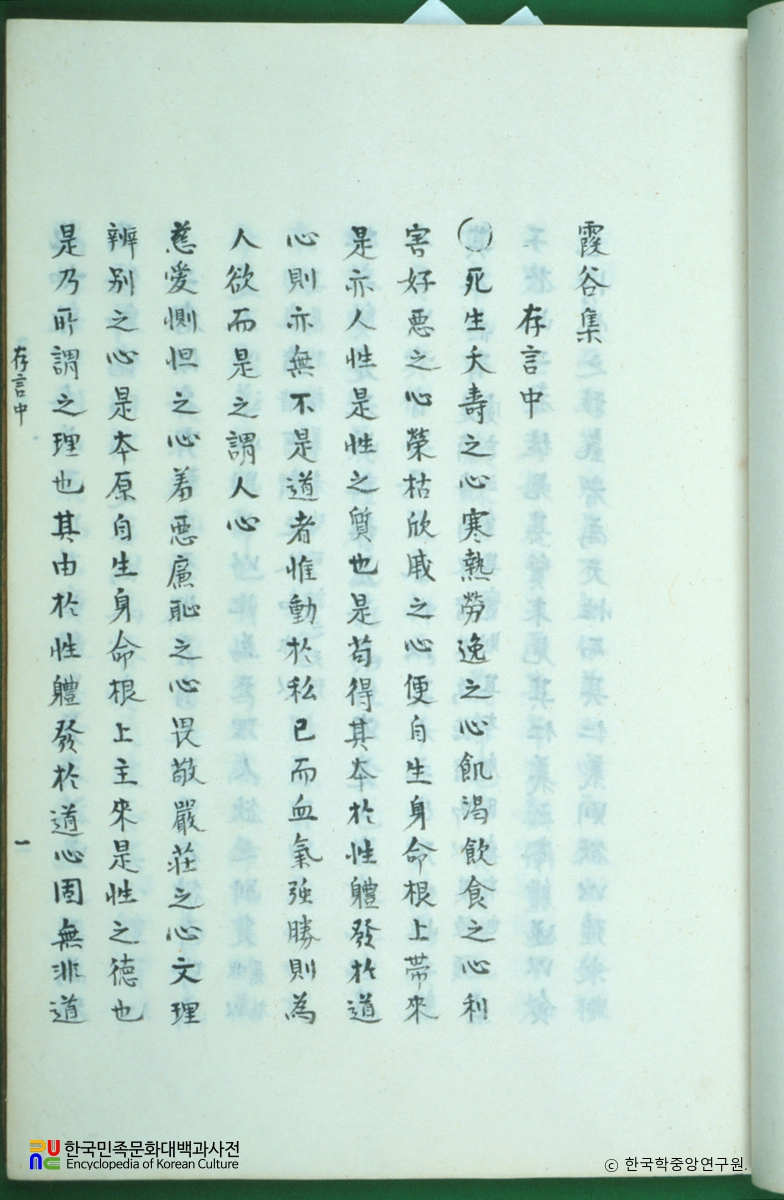 霞谷集
存言中
○死生夭壽之心寒熱勞逸之心飢渴飮食之心利
害好惡之心榮枯欣戚之心便自生身命根上帶來
是亦人性是性之質也是苟得其夲於性體發於道
心則亦無不是道者惟動於私已而血氣强勝則為
人欲而是之謂人心
慈愛惻怛之心羞惡廉恥之心畏敬嚴莊之心文理
辨别之心是夲原自生身命根上主來是性之德也
是乃所謂之理也其由於性體發於道心固無非道
存言中
一
한국민족문화대백과사전
Encyclopedia of Korean Culture
© 한국학중앙연구원.